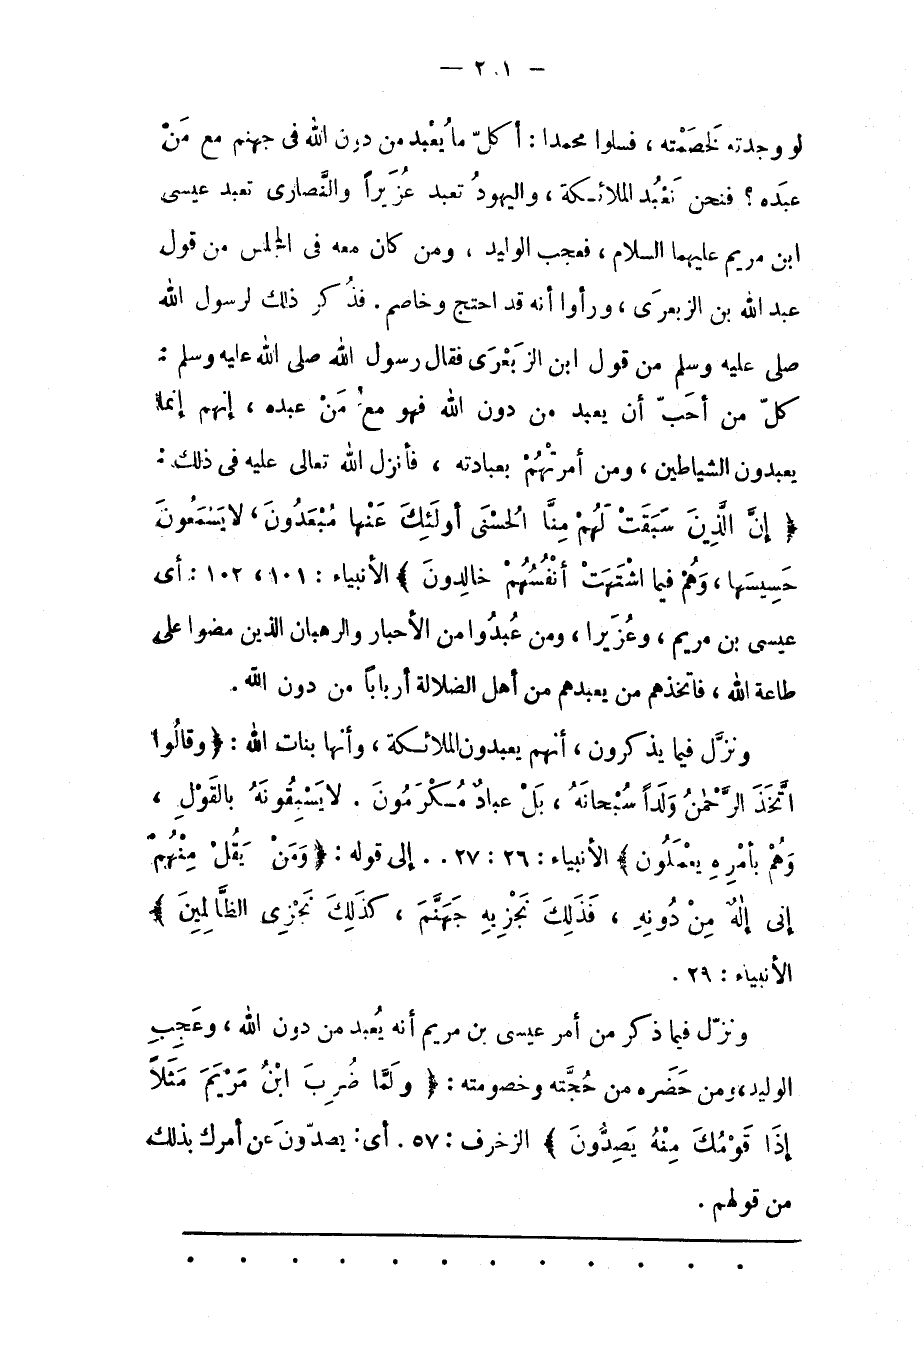 — ٢٠١ —
لو وجدته لَخصَمْته ، فسلوا محمدا : أكلّ ما يُعْبد من دون الله فى جهنم مع مَنْ
عبَده ؟ فنحن نَعْبُد الملائكة ، واليهودُ تعبد عُزَيراً والنَّصارى تعبد عيسى
ابن مريم عليهما السلام ، فعجب الوليد ، ومن كان معه فى المجلس من قول
عبد الله بن الزبعرَى ، ورأوا أنه قد احتج وخاصم . فذُكر ذلك لرسول الله
صلى عليه وسلم من قول ابن الزبَعْرَى فقال رسول الله صلى الله عليه وسلم :
كلّ من أحَبّ أن يعبد من دون الله فهو مع مَنْ عبده ، إنهم إنما
يعبدون الشياطين ، ومن أمرتْهُمْ بعبادته ، فأنزل الله تعالى عليه فى ذلك :
﴿ إنَّ الَّذِينَ سَبَقَتْ لَهُمْ مِنَّا الْحُسْنَى أولَئِكَ عَنْها مُبْعَدُونَ ، لا يَسْمَعُونَ
حَسِيسَها ، وَهُمْ فيما اشْتَهَتْ أنْفُسُهُمْ خالِدونَ ﴾ الأنبياء : ١٠١ ، ١٠٢ : أى
عيسى بن مريم ، وعُزَيرا ، ومن عُبدُوا من الأحبار والرهبان الذين مضوا على
طاعة الله ، فاتخذهم من يعبدهم من أهل الضلالة أرباباً من دون الله .
ونزَّل فيما يذكرون ، أنهم يعبدون الملائكة ، وأنها بنات الله : ﴿ وقالُوا
اتَّخَذَ الرَّحْمٰنُ وَلَداً سُبْحانَهُ ، بَلْ عبادٌ مُكْرَمُونَ . لا يَسْبِقُونَهُ بالقَوْلِ ،
وَهُمْ بأمْرِهِ يعْمَلُون ﴾ الأنبياء : ٢٦ : ٢٧ . . إلى قوله : ﴿ وَمَنْ يَقُلْ مِنْهُمْ
إنى إلٰهٌ مِنْ دُونِهِ ، فَذَلِكَ نَجْزِيهِ جَهَنَّمَ ، كَذَلِكَ نَجْزِى الظَّالِمِينَ ﴾
الأنبياء : ٢٩ .
ونزّل فيما ذكر من أمر عيسى بن مريم أنه يُعبد من دون الله ، وعَجِبِ
الوليد ، ومن حَضَره من حُجَّته وخصومته : ﴿ ولَمَّا ضُرِبَ ابْنُ مَرْيَمَ مَثَلاً
إذَا قَوْمُكَ مِنْهُ يَصِدُّونَ ﴾ الزخرف : ٥٧ . أى : يصدّون عن أمرك بذلك
من قولهم .